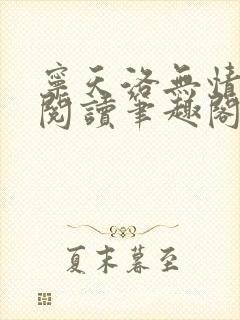 寧天洛無情
閱讀筆趣閣
夏末暮至